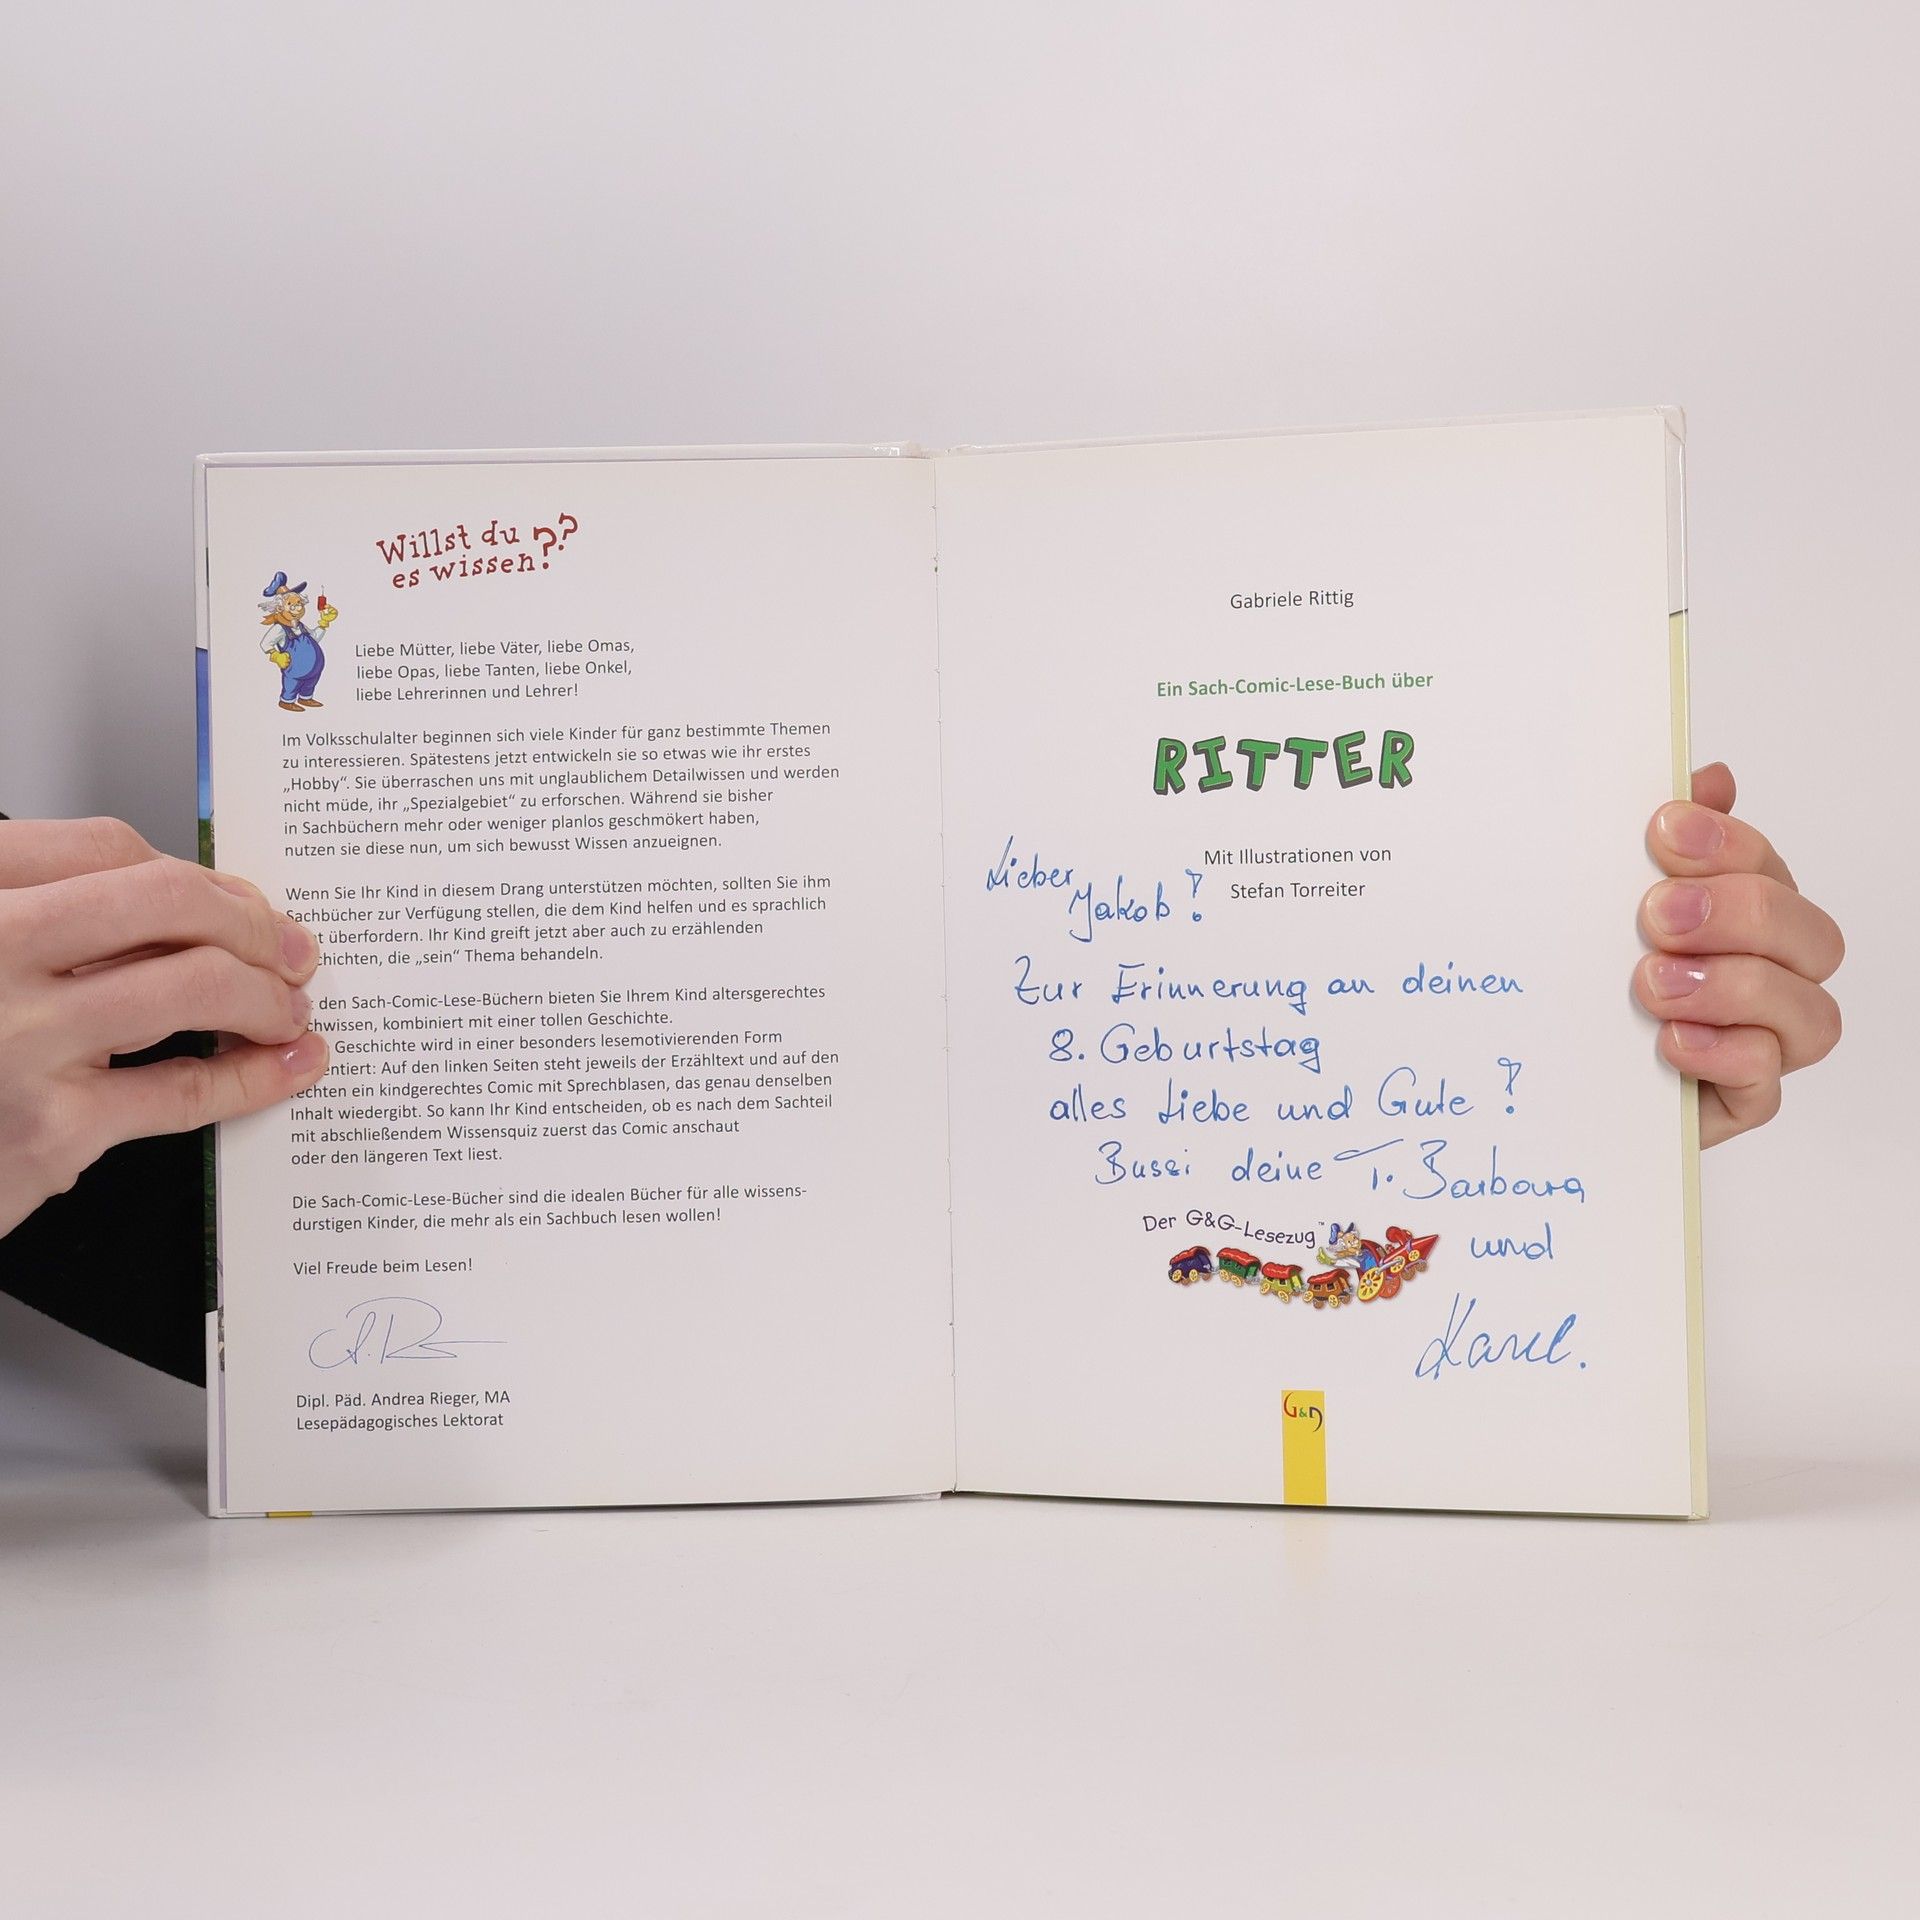 Willst du
es wissen???
Liebe Mütter, liebe Väter, liebe Omas,
liebe Opas, liebe Tanten, liebe Onkel,
liebe Lehrerinnen und Lehrer!
Im Volksschulalter beginnen sich viele Kinder für ganz bestimmte Themen
zu interessieren. Spätestens jetzt entwickeln sie so etwas wie ihr erstes
„Hobby“. Sie überraschen uns mit unglaublichem Detailwissen und werden
nicht müde, ihr „Spezialgebiet“ zu erforschen. Während sie bisher
in Sachbüchern mehr oder weniger planlos geschmökert haben,
nutzen sie diese nun, um sich bewusst Wissen anzueignen.
Wenn Sie Ihr Kind in diesem Drang unterstützen möchten, sollten Sie ihm
Sachbücher zur Verfügung stellen, die dem Kind helfen und es sprachlich
überfordern. Ihr Kind greift jetzt aber auch zu erzählenden
chichten, die „sein“ Thema behandeln.
den Sach-Comic-Lese-Büchern bieten Sie Ihrem Kind altersgerechtes
chwissen, kombiniert mit einer tollen Geschichte.
Geschichte wird in einer besonders lesemotivierenden Form
entiert: Auf den linken Seiten steht jeweils der Erzähltext und auf den
rechten ein kindgerechtes Comic mit Sprechblasen, das genau denselben
Inhalt wiedergibt. So kann Ihr Kind entscheiden, ob es nach dem Sachteil
mit abschließendem Wissensquiz zuerst das Comic anschaut
oder den längeren Text liest.
Die Sach-Comic-Lese-Bücher sind die idealen Bücher für alle wissens-
durstigen Kinder, die mehr als ein Sachbuch lesen wollen!
Viel Freude beim Lesen!
Dipl. Päd. Andrea Rieger, MA
Lesepädagogisches Lektorat
Gabriele Rittig
Ein Sach-Comic-Lese-Buch über
RITTER
Mit Illustrationen von
Stefan Torreiter
Lieber
Jakob!
Zur Erinnerung an deinen
8. Geburtstag
alles Liebe und Gute!
Bussi deine T. Barbara
und
Karel.
Der G&G-Lesezug™
G&G